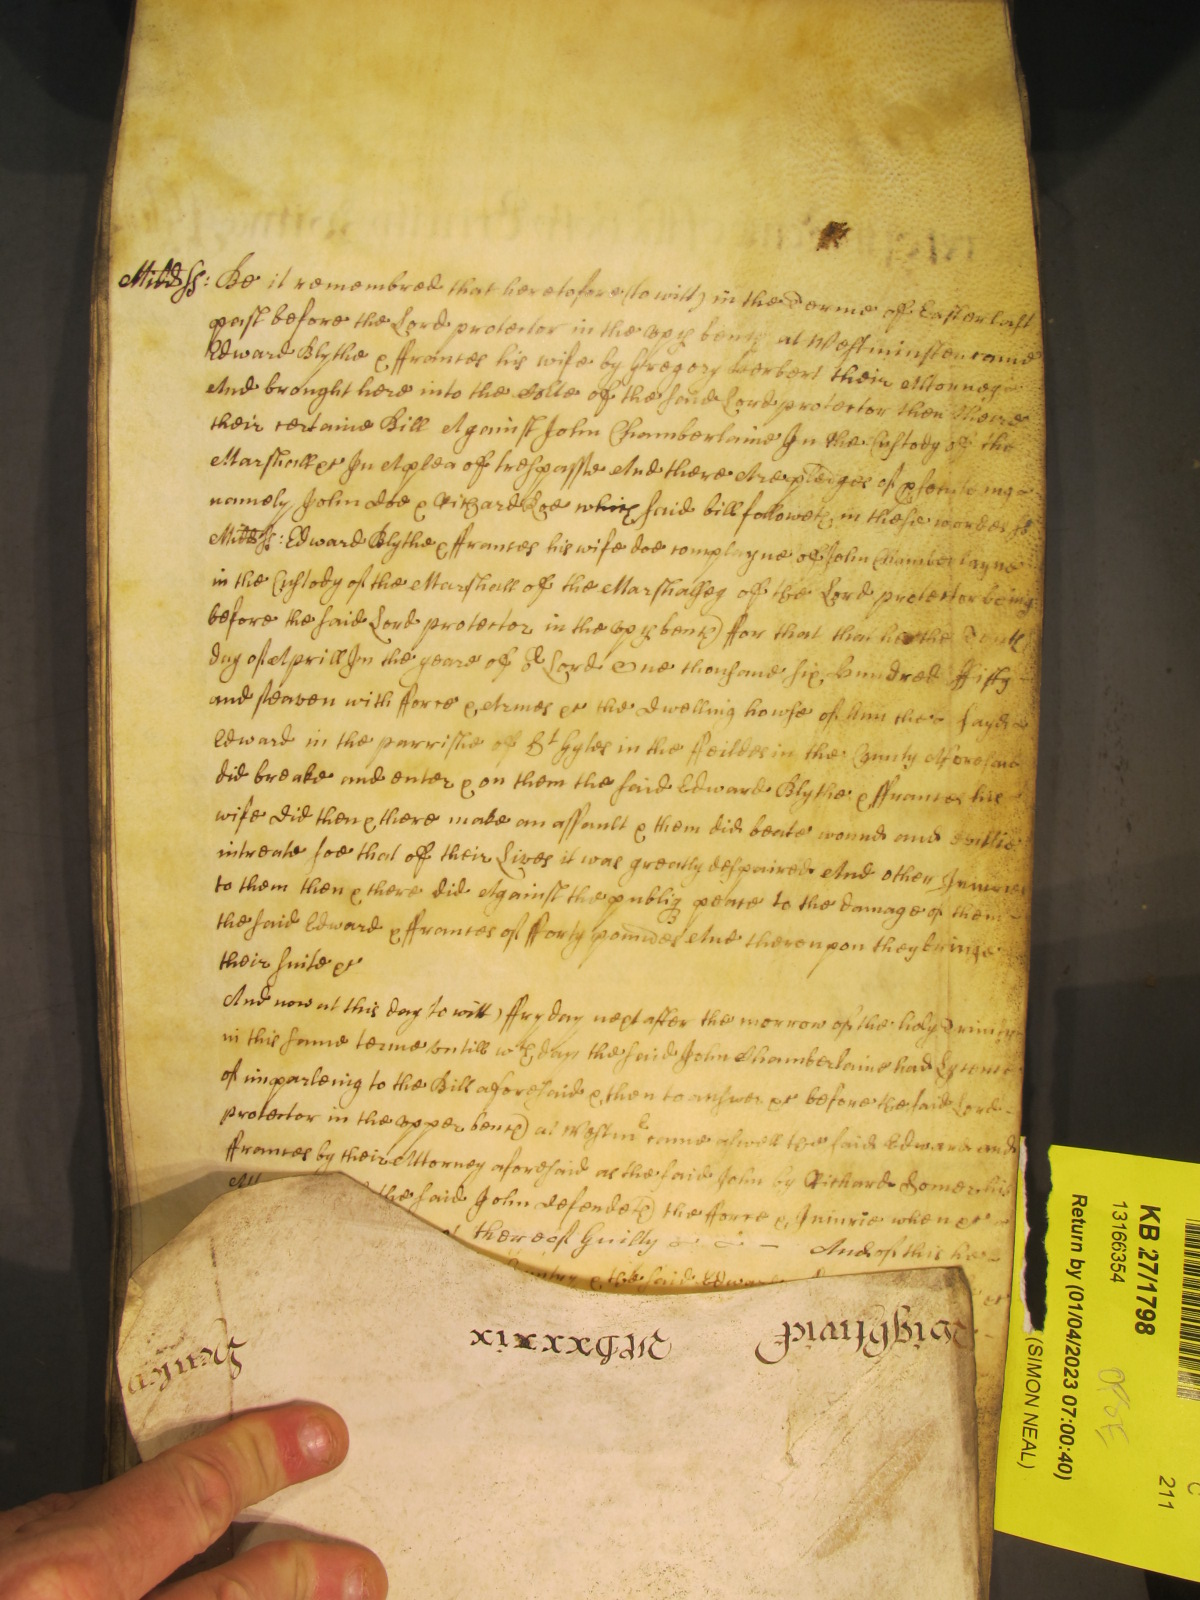 Midds ss: Be it remembred that heretofore (to witt) in the Terme of Easter last
past before the Lord protector in the upp bench at Westminster came
Edward Blythe & ffrances his wife by Gregory Herbert their Attorney
And brought here into the Courte of the said Lord protector then there
their certaine Bill Against John Chamberlaine In the Custody of the
Marshall &c In A plea of trespasse And there Are pledges of
namely John Doe & Richard Roe which said bill followeth in these wordes ss
Midds ss: Edward Blythe & ffrances his wife doe complayne of John Chamberlayne
in the Custody of the Marshall of the Marshalsey of the Lord protector being
before the said Lord protector in the upp bench) ffor that that hee the Tenth
day of Aprill In the yeare of Lord One thousand six hundred ffifty
and seaven with fforce & Armes &c the dwelling howse of him the sayd
Edward in the parrishe of St Gyles in the ffeildes in the County Aforesaid
did breake and enter & on them the said Edward Blythe & ffrances his
wife did then & there make an assault & them did beate wound and evillie
intreate soe that of their Lives it was greatly despaired And other Iniuries
to them then & there did Against the publiq peace to the damage of them
the said Edward & ffrances of fforty poundes And thereupon they bringe
their suite &c
And now at this day to witt) ffryday next after the morrow of the holy Trinity
in this same terme untill wch day the said John Chamberlaine had Lycence
of imparleing to the Bill aforesaid & then to answer &c before the said Lord
protector in the upper bench) at Westmr came aswell the said Edward and
ffrances by their Attorney aforesaid as the said John by Richard his
the said John defendeth) the fforce & Iniurie when &c
thereof Guilty And of this hee
& the said Edward
Wightwick
xxxix
KB 27/1798
13166354
Return by (01/04/2023 07:00:40)
(SIMON NEAL)
C
211